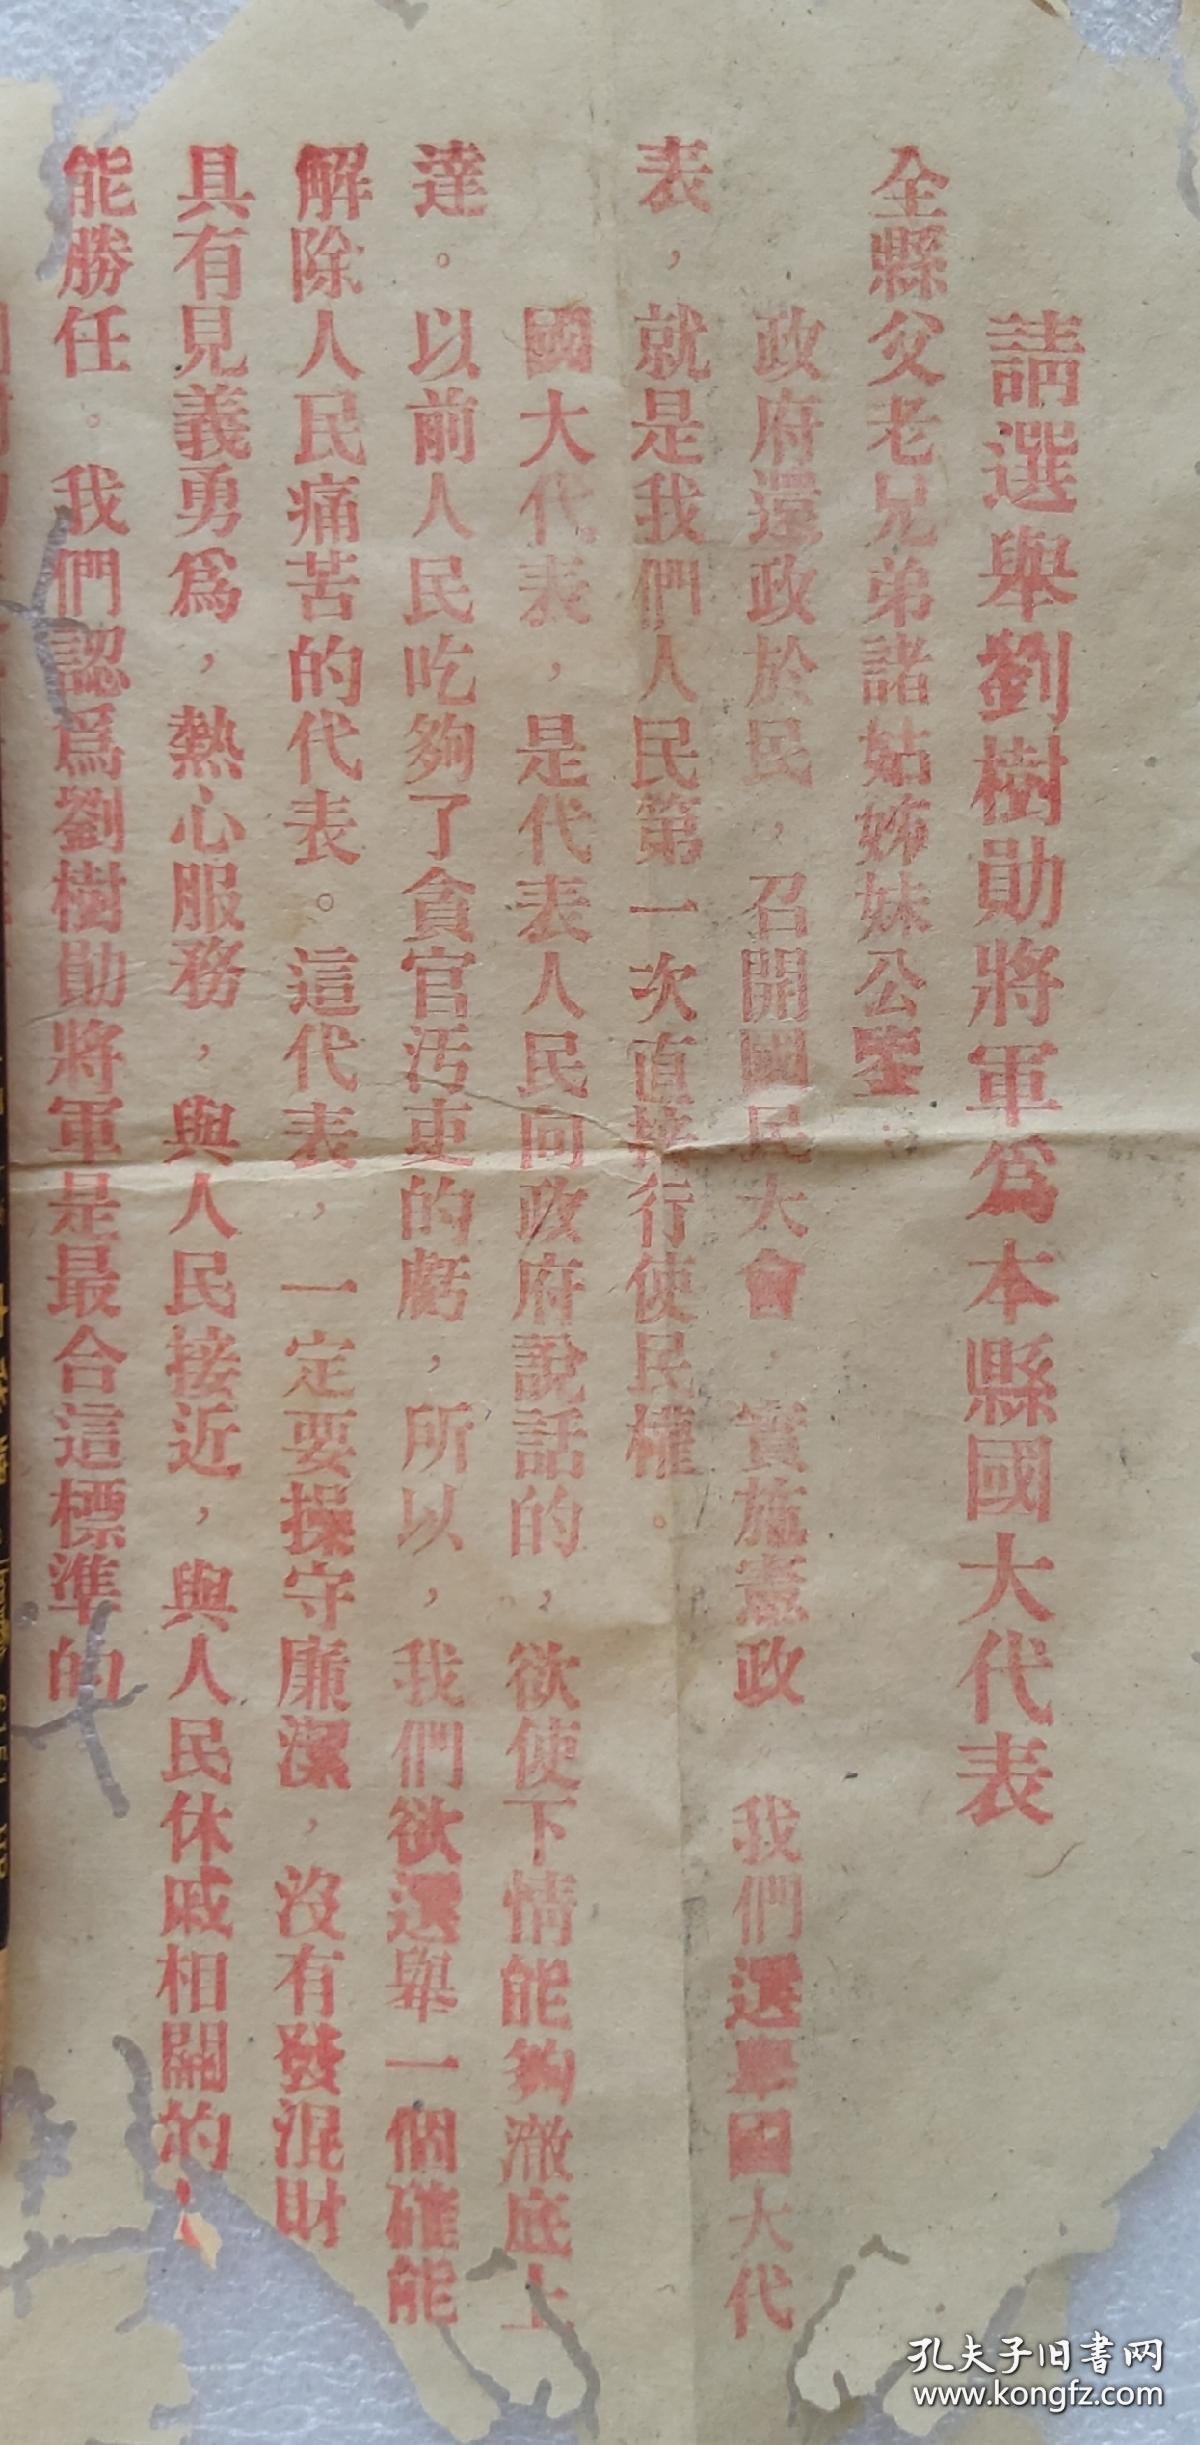 請選舉劉樹勛將軍爲本縣國大代表
全縣父老兄弟諸姑姊妹公鑒
政府還政於民，召開國民大會，實施憲政，我們選舉國大代
表，就是我們人民第一次直接行使民權。
國大代表，是代表人民向政府說話的，欲使下情能夠澈底上
達。以前人民吃夠了貪官汚吏的虧，所以，我們欲選舉一個確能
解除人民痛苦的代表。這代表，一定要操守廉潔，沒有發混財
具有見義勇爲，熱心服務，與人民接近，與人民休戚相關的
能勝任。我們認爲劉樹勛將軍是最合這標準的
孔夫子旧书网
www.kongfz.com